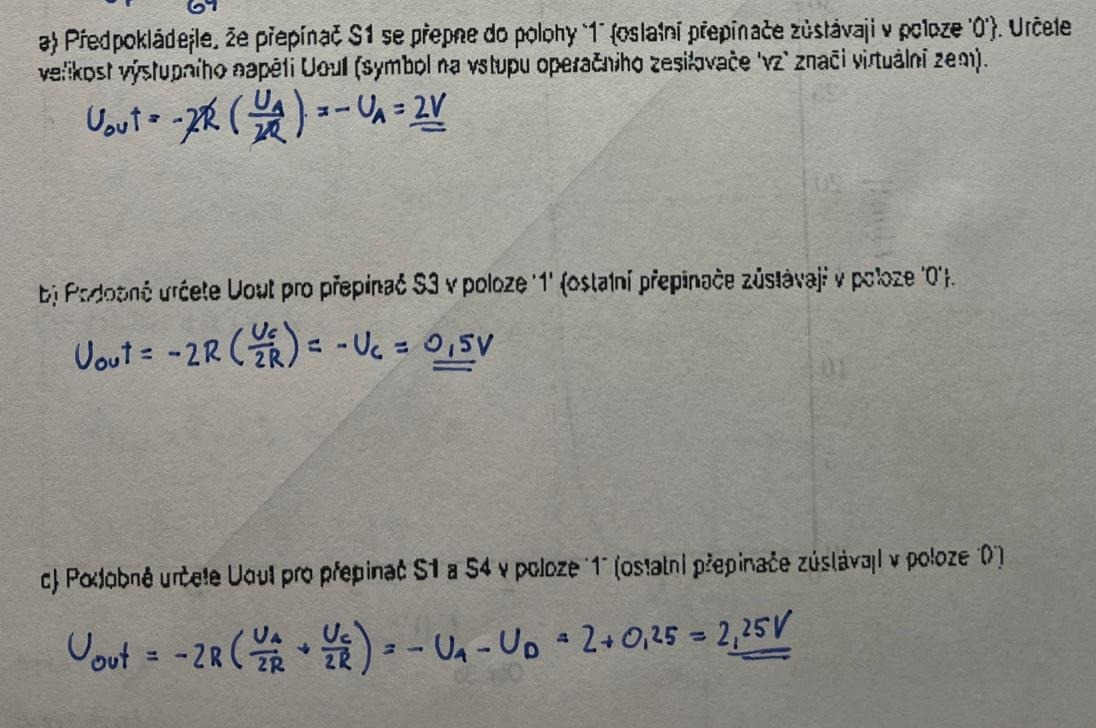 64
a) Předpokládejte, že přepínač S1 se přepne do polohy '1' (ostatní přepínače zůstávají v poloze '0'). Určete
velikost výstupního napětí Uout (symbol na vstupu operačního zesilovače 'vz' značí virtuální zem).
Uout = -2R (UA/2R) = -UA = 2V
b) Podobně určete Uout pro přepínač S3 v poloze '1' (ostatní přepínače zůstávají v poloze '0').
Uout = -2R (UC/2R) = -UC = 0,5V
c) Podobně určete Uout pro přepínač S1 a S4 v poloze '1' (ostatní přepínače zůstávají v poloze '0')
Uout = -2R (UA/2R + UC/2R) = -UA - UD = 2+0,25 = 2,25V